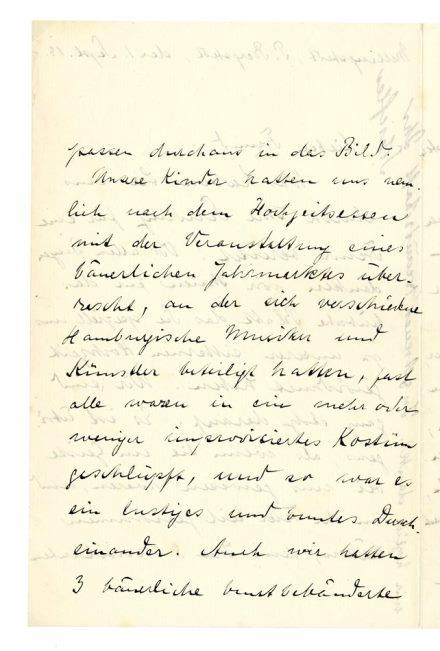 passen durchaus in das Bild.
Unsre Kinder hatten uns näm-
lich nach dem Hochzeitsessen
mit der Veranstaltung eines
bäuerlichen Jahrmarktes über-
rascht, an der sich verschiedene
Hamburgische Musiker und
Künstler beteiligt hatten, fast
alle waren in ein mehr oder
weniger improvisiertes Kostüm
geschlüpft, und so war es
ein lustiges und buntes Durch-
einander. Auch wir hatten
3 bäuerliche buntbebänderte